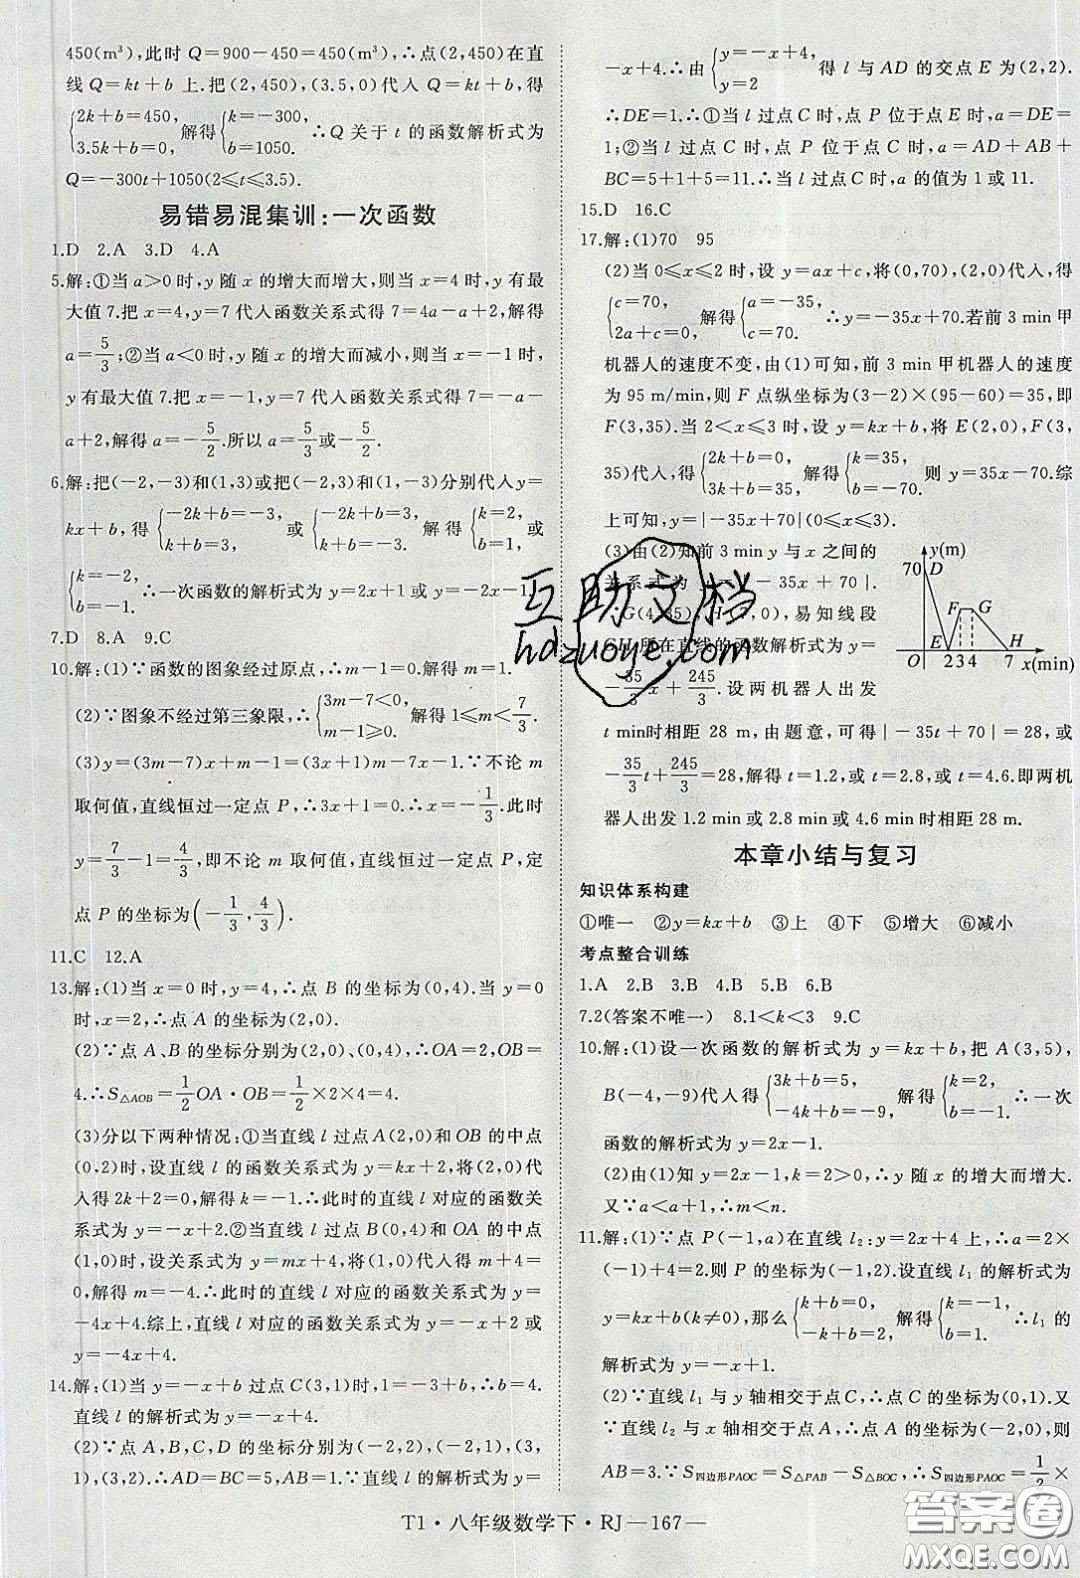 450(m³),此时 Q=900-450=450(m³),∴点(2,450)在直
线 Q=kt+b 上.把(2,450),(3.5,0)代入 Q=kt+b,得
{2k+b=450, 3.5k+b=0, 解得{k=-300, b=1050. ∴Q 关于 t 的函数解析式为
Q=-300t+1050(2≤t≤3.5).
易错易混集训:一次函数
1.D 2.A 3.D 4.A
5.解:①当 a>0时,y 随 x 的增大而增大,则当 x=4 时,y有最
大值 7.把 x=4,y=7 代入函数关系式得 7=4a-a+2,解得
a=5/3;②当 a<0时,y 随 x 的增大而减小,则当 x=-1 时,
y有最大值 7.把 x=-1,y=7 代入函数关系式得 7=-a-
a+2,解得 a=-5/2.所以 a=5/3或-5/2.
6.解:把(-2,-3)和(1,3)或把(-2,3)和(1,-3)分别代入y=
kx+b,得{-2k+b=-3, k+b=3, 或{-2k+b=3, k+b=-3, 解得{k=2, b=1, 或
{k=-2, b=-1. ∴一次函数的解析式为 y=2x+1或 y=-2x-1.
7.D 8.A 9.C
10.解:(1)∵函数的图象经过原点,∴m-1=0,解得 m=1.
(2)∵图象不经过第三象限,∴{3m-7<0, m-1≥0. 解得 1≤m<7/3.
(3)y=(3m-7)x+m-1=(3x+1)m-7x-1.∵不论 m
取何值,直线恒过一定点 P,∴3x+1=0.∴x=-1/3.此时
y=7/3-1=4/3,即不论 m 取何值,直线恒过一定点 P,定
点 P 的坐标为(-1/3,4/3).
11.C 12.A
13.解:(1)当 x=0 时,y=4,∴点 B 的坐标为(0,4).当 y=0
时,x=2,∴点 A 的坐标为(2,0).
(2)∵点 A、B 的坐标分别为(2,0)、(0,4),∴OA=2,OB=
4.∴S△AOB=1/2 OA·OB=1/2×2×4=4.
(3)分以下两种情况:①当直线 l 过点A(2,0)和 OB 的中点
(0,2)时,设直线 l 的函数关系式为 y=kx+2,将(2,0)代
入得 2k+2=0.∴k=-1.∴此时的直线 l 对应的函数关
系式为 y=-x+2.②当直线 l 过点 B(0,4)和 OA 的中点
(1,0)时,设关系式为 y=mx+4,将(1,0)代入得 m+4=
0,解得 m=-4.∴此时的直线 l 对应的函数关系式为 y=
-4x+4.综上,直线 l 对应的函数关系式为 y=-x+2 或
y=-4x+4.
14.解:(1)当 y=-x+b 过点C(3,1)时,1=-3+b,∴b=4.
直线 l 的解析式为 y=-x+4.
(2)∵点 A,B,C,D 的坐标分别为(-2,2),(-2,1),(3,
1),(3,2).∴AD=BC=5,AB=1.∵直线 l 的解析式为y=
-x+4.∴由{y=-x+4, y=2 得 l 与 AD 的交点 E 为(2,2).
∴DE=1.∴①当 l 过点 C 时,点 P 位于点 E 时,a=DE=
1;②当 l 过点 C 时,点 P 位于点 C 时,a=AD+AB+
BC=5+1+5=11.∴当 l 过点 C 时,a的值为 1 或 11.
15.D 16.C
17.解:(1)70 95
(2)当 0≤x≤2 时,设 y=ax+c,将(0,70),(2,0)代入,得
{c=70, 2a+c=0, 解得{a=-35, c=70. ∴y=-35x+70.若前 3 min 甲
机器人的速度不变,由(1)可知,前 3 min 甲机器人的速度
为 95 m/min,则 F 点纵坐标为(3-2)×(95-60)=35,即
F(3,35).当 2<x≤3 时,设 y=kx+b,将 E(2,0),F(3,
35)代入,得{2k+b=0, 3k+b=35, 解得{k=35, b=-70. 则 y=35x-70.综
上可知,y=|-35x+70|(0≤x≤3).
(3)由(2)知前 3 min y 与 x 之间的
关系式为 y=|-35x+70|.
∵G(4,35),H(7,0),易知线段
GH 所在直线的函数解析式为y=
-35/3 x+245/3.设两机器人出发
t min时相距 28 m,由题意,可得|-35x+70|=28,或
-35/3 t+245/3=28,解得 t=1.2,或 t=2.8,或 t=4.6.即两机
器人出发 1.2 min 或 2.8 min 或 4.6 min 时相距 28 m.
y(m)
70 D
F G
O E 2 3 4 7 H x(min)
本章小结与复习
知识体系构建
①唯一 ②y=kx+b ③上 ④下 ⑤增大 ⑥减小
考点整合训练
1.A 2.B 3.B 4.B 5.B 6.B
7.2(答案不唯一) 8.1<k<3 9.C
10.解:(1)设一次函数的解析式为 y=kx+b,把 A(3,5),
B(-4,-9)代入得{3k+b=5, -4k+b=-9, 解得{k=2, b=-1. ∴一次
函数的解析式为 y=2x-1.
(2)由(1)知 y=2x-1,k=2>0,∴y 随 x 的增大而增大.
又∵a<a+1,∴m<n.
11.解:(1)∵点 P(-1,a)在直线 l₂:y=2x+4 上,∴a=2×
(-1)+4=2.则 P 的坐标为(-1,2).设直线 l₁ 的解析式为
y=kx+b(k≠0),那么{k+b=0, -k+b=2, 解得{k=-1, b=1. ∴l₁ 的
解析式为 y=-x+1.
(2)∵直线 l₁ 与 y 轴相交于点C,∴点C的坐标为(0,1).又
∵直线 l₂ 与 x 轴相交于点 A,∴点 A 的坐标为(-2,0),则
AB=3.∵S四边形PAOC=S△PAB-S△BOC,∴S四边形PAOC=1/2×
T1·八年级数学下·RJ—167—
互助文档
hdzuoye.com
答案圈
MXQE.COM